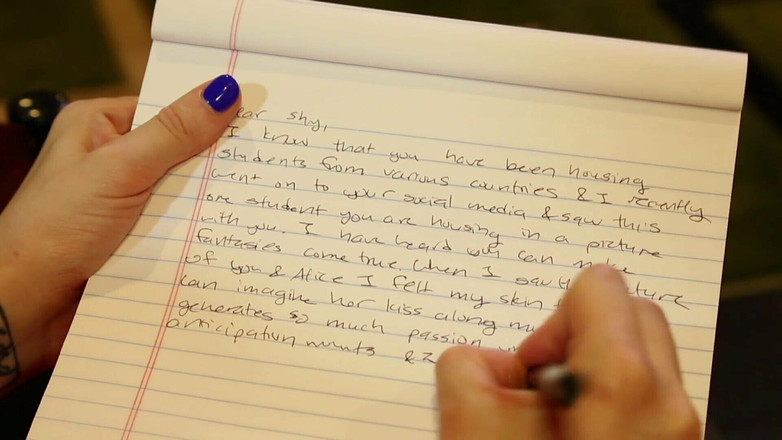 ear Shy,
I know that you have been housing
students from various countries & I recently
went on to your social media & saw this
one student you are housing in a picture
with you. I have heard you can make
fantasies come true. When I saw the picture
of you & Alice I felt my skin
can imagine her kiss along my
generates so much passion
anticipation mounts & I